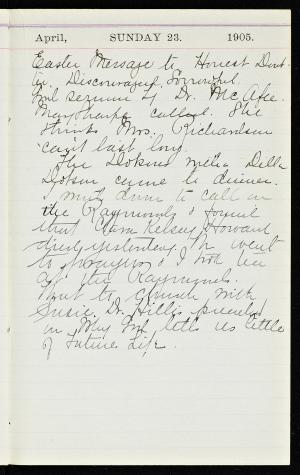 April, SUNDAY 23. 1905.
Easter Message to Honest Doubt-
er, Discouraged, Sorrowful.
sermon by Dr. McAfee.
May Tharpe called. She
thinks Mrs. Richardson
can't last long.
The Dotsons with Della
Dotson came to dinner.
I went down to call on
the Raymonds & found
that Clara Kelsey Howard
died yesterday. We went
to prayers & I took tea
at the Raymonds.
Went to Church with
Susie. Dr. Hillis preached
on Why God tells us little
of Future Life.